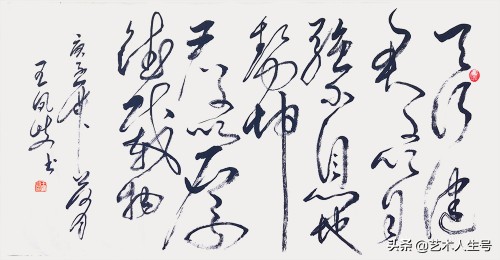 天行健
君子以自
强不息地
势坤
君子以厚
德载物
庚子年荷月
王凤岐书
头条 @艺术人生号